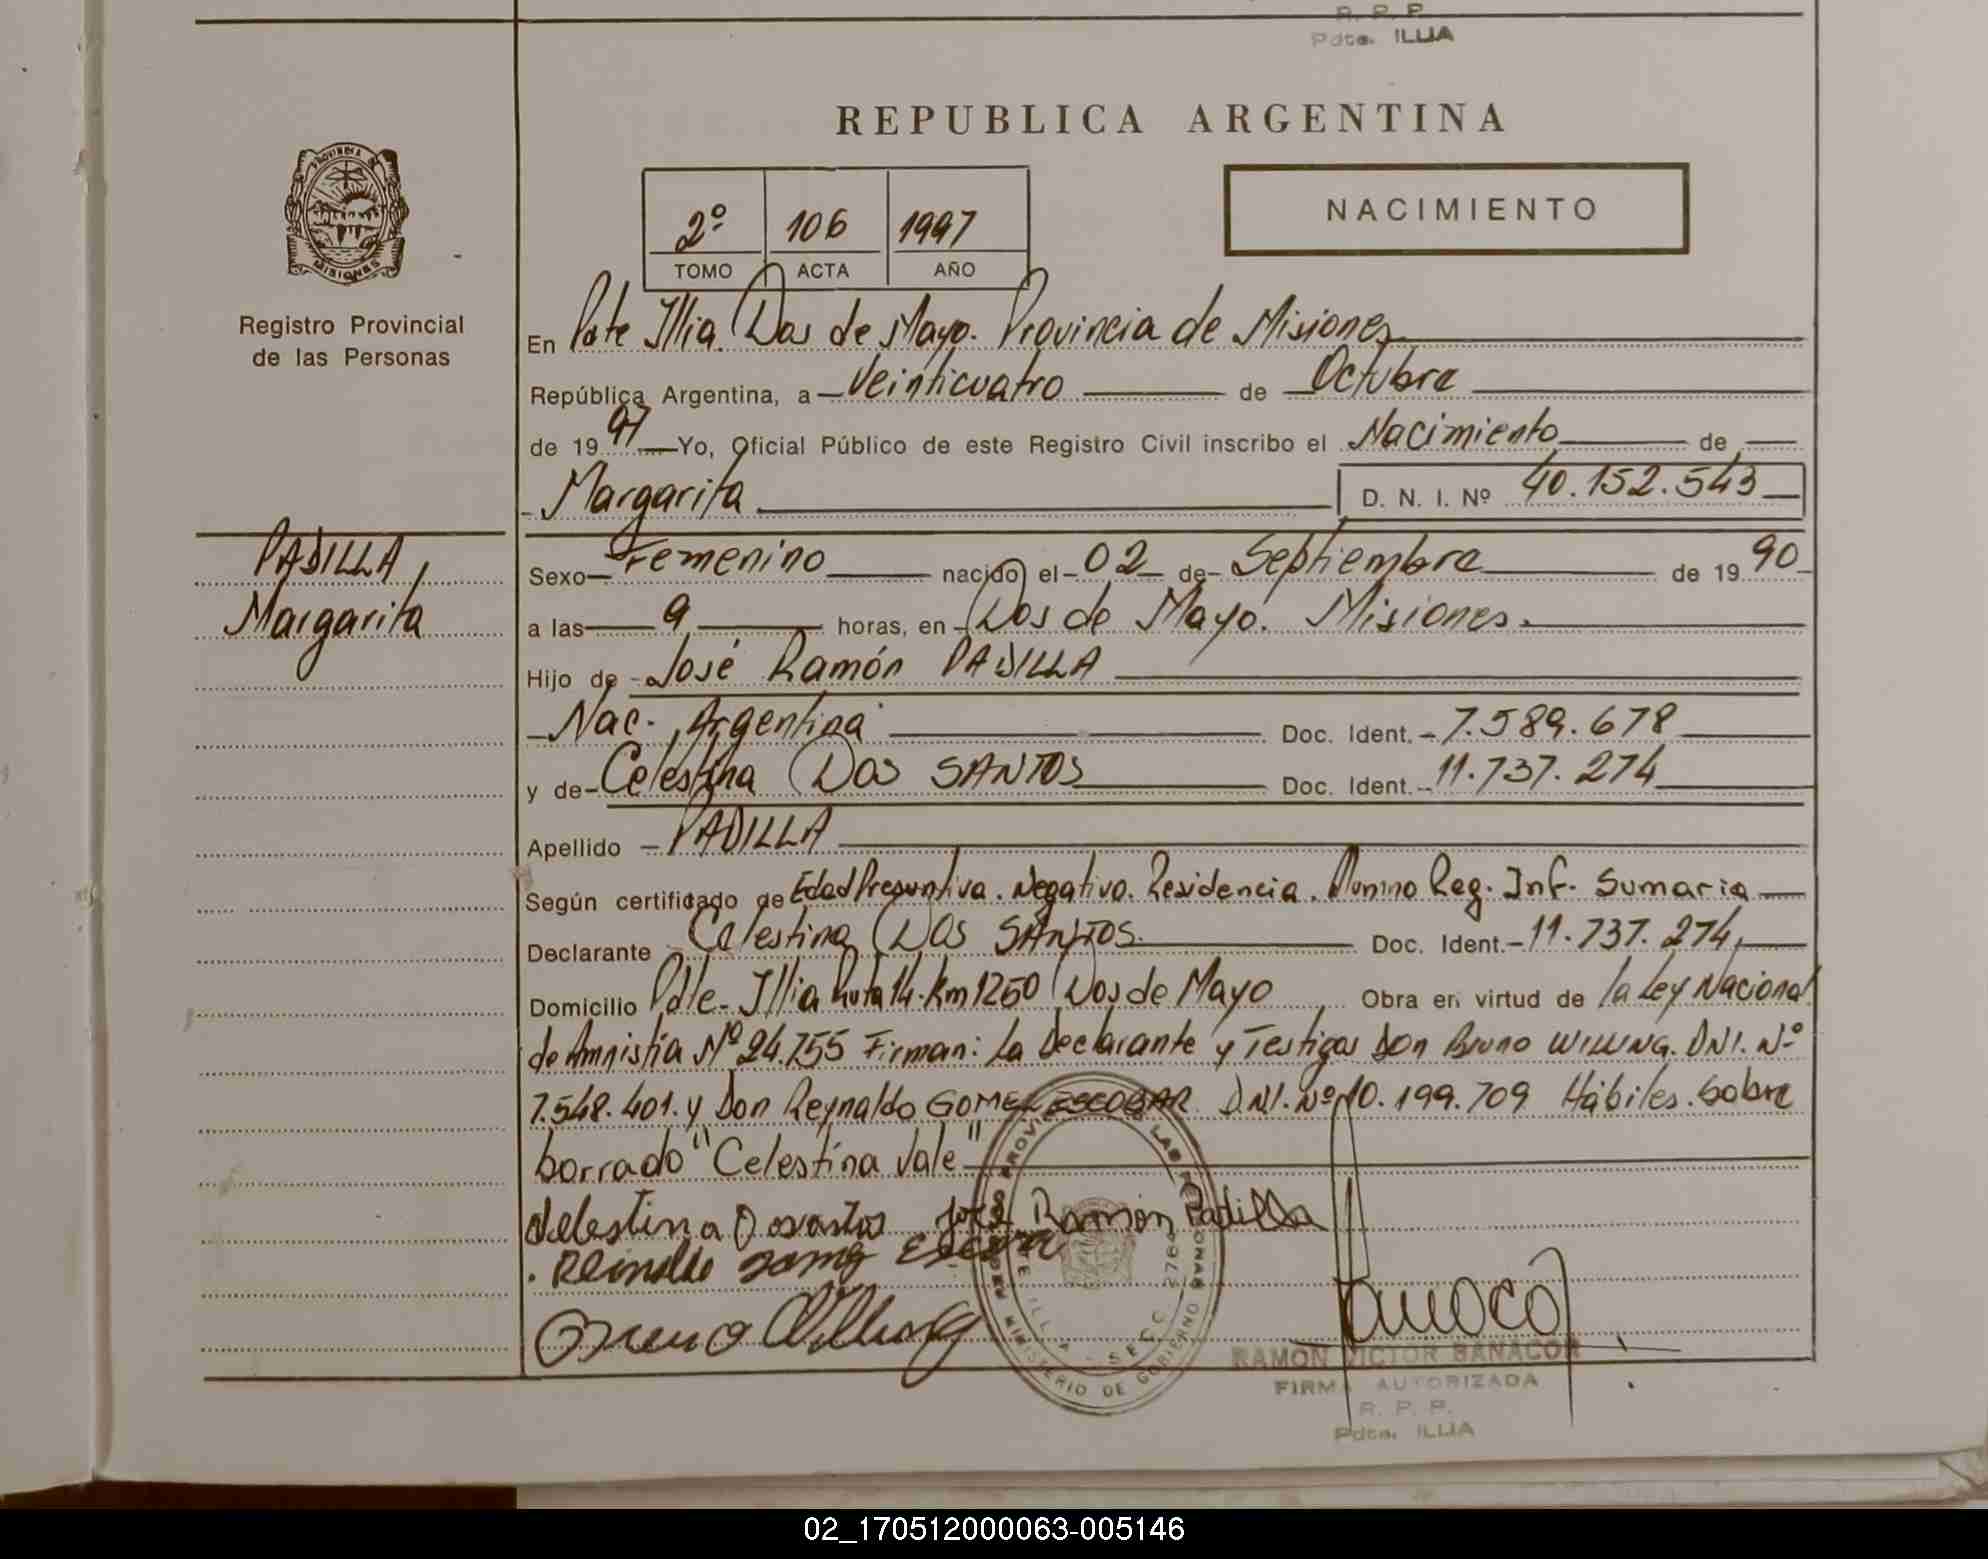 R. P. P.
Pdte. ILLIA
REPUBLICA ARGENTINA
PROVINCIA DE
MISIONES
Registro Provincial
de las Personas
2º 106 1997
TOMO ACTA AÑO
NACIMIENTO
En Pdte Illia. Dos de Mayo. Provincia de Misiones
República Argentina, a Veinticuatro de Octubre
de 19 97 Yo, Oficial Público de este Registro Civil inscribo el Nacimiento de
Margarita D. N. I. Nº 40.152.543
PADILLA,
Margarita
Sexo Femenino nacido el 02 de Septiembre de 19 90
a las 9 horas, en Dos de Mayo. Misiones.
Hijo de José Ramón PADILLA
Nac. Argentina Doc. Ident. 7.589.678
y de Celestina DOS SANTOS Doc. Ident. 11.737.274
Apellido PADILLA
Según certificado de Edad Presuntiva. Negativo. Residencia. Reg. Inf. Sumaria
Declarante Celestina DOS SANTOS. Doc. Ident. 11.737.274
Domicilio Pdte. Illia Ruta 14. Km 1250 Dos de Mayo Obra en virtud de la Ley Nacional
de Amnistía Nº 24.755 Firman: La Declarante y Testigos Don Bruno WILLING. DNI. Nº
7.548.401. y Don Reynaldo GOMEZ ESCOBAR D.N.I. Nº 10.199.709 Hábiles. Sobre
borrado "Celestina Vale"
José Ramón Padilla
MINISTERIO DE GOBIERNO
RAMON VICTOR BANACOR
FIRMA AUTORIZADA
R. P. P.
Pdte. ILLIA
02_170512000063-005146